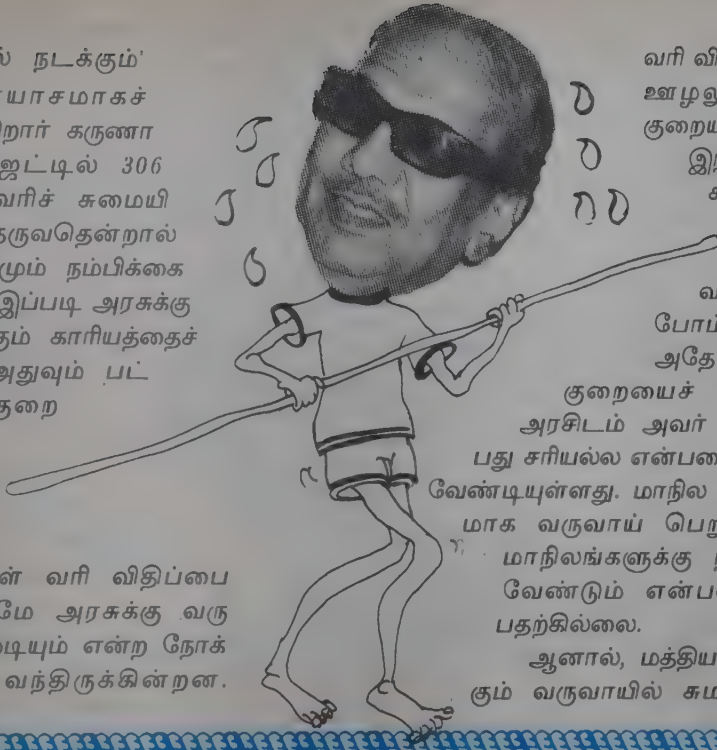 ல் நடக்கும்'
யாசமாகச்
றார் கருணா
ஜட்டில் 306
வரிச் சுமையி
தருவதென்றால்
மும் நம்பிக்கை
இப்படி அரசுக்கு
கும் காரியத்தைச்
அதுவும் பட்
குறை
ள் வரி விதிப்பை
மே அரசுக்கு வரு
டியும் என்ற நோக்
வந்திருக்கின்றன.
வரி வி
ஊழலு
குறைய
இ
வ
போ
அதே
குறையைச்
அரசிடம் அவர்
பது சரியல்ல என்ப
வேண்டியுள்ளது. மாநில
மாக வருவாய் பெறு
மாநிலங்களுக்கு
வேண்டும் என்ப
பதற்கில்லை.
ஆனால், மத்திய
கும் வருவாயில் சும